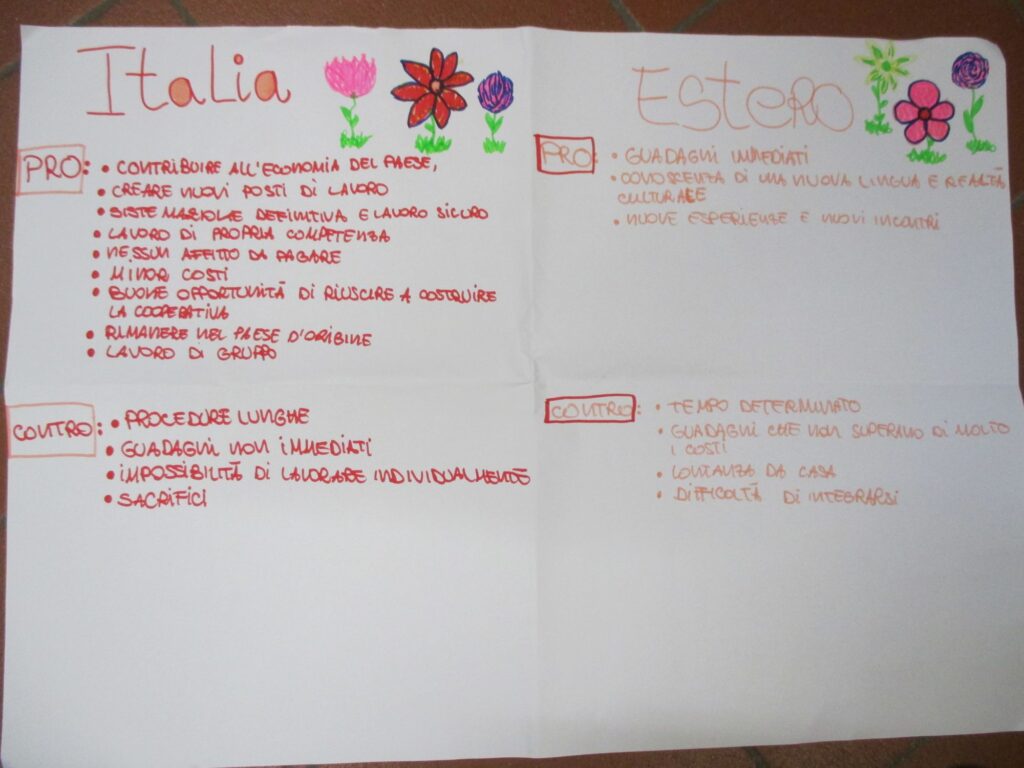 Italia
PRO:
• CONTRIBUIRE ALL'ECONOMIA DEL PAESE,
• CREARE NUOVI POSTI DI LAVORO
• SISTEMAZIONE DEFINITIVA E LAVORO SICURO
• LAVORO DI PROPRIA COMPETENZA
• NESSUN AFFITTO DA PAGARE
• MINOR COSTI
• BUONE OPPORTUNITÀ DI RIUSCIRE A COSTRUIRE
LA COOPERATIVA
• RIMANERE NEL PAESE D'ORIGINE
• LAVORO DI GRUPPO
CONTRO:
• PROCEDURE LUNGHE
• GUADAGNI NON IMMEDIATI
• IMPOSSIBILITÀ DI LAVORARE INDIVIDUALMENTE
• SACRIFICI
Estero
PRO:
• GUADAGNI IMMEDIATI
• CONOSCENZA DI UNA NUOVA LINGUA E REALTÀ
CULTURALE
• NUOVE ESPERIENZE E NUOVI INCONTRI
CONTRO:
• TEMPO DETERMINATO
• GUADAGNI CHE NON SUPERANO DI MOLTO
I COSTI
• LONTANZA DA CASA
• DIFFICOLTÀ DI INTEGRARSI